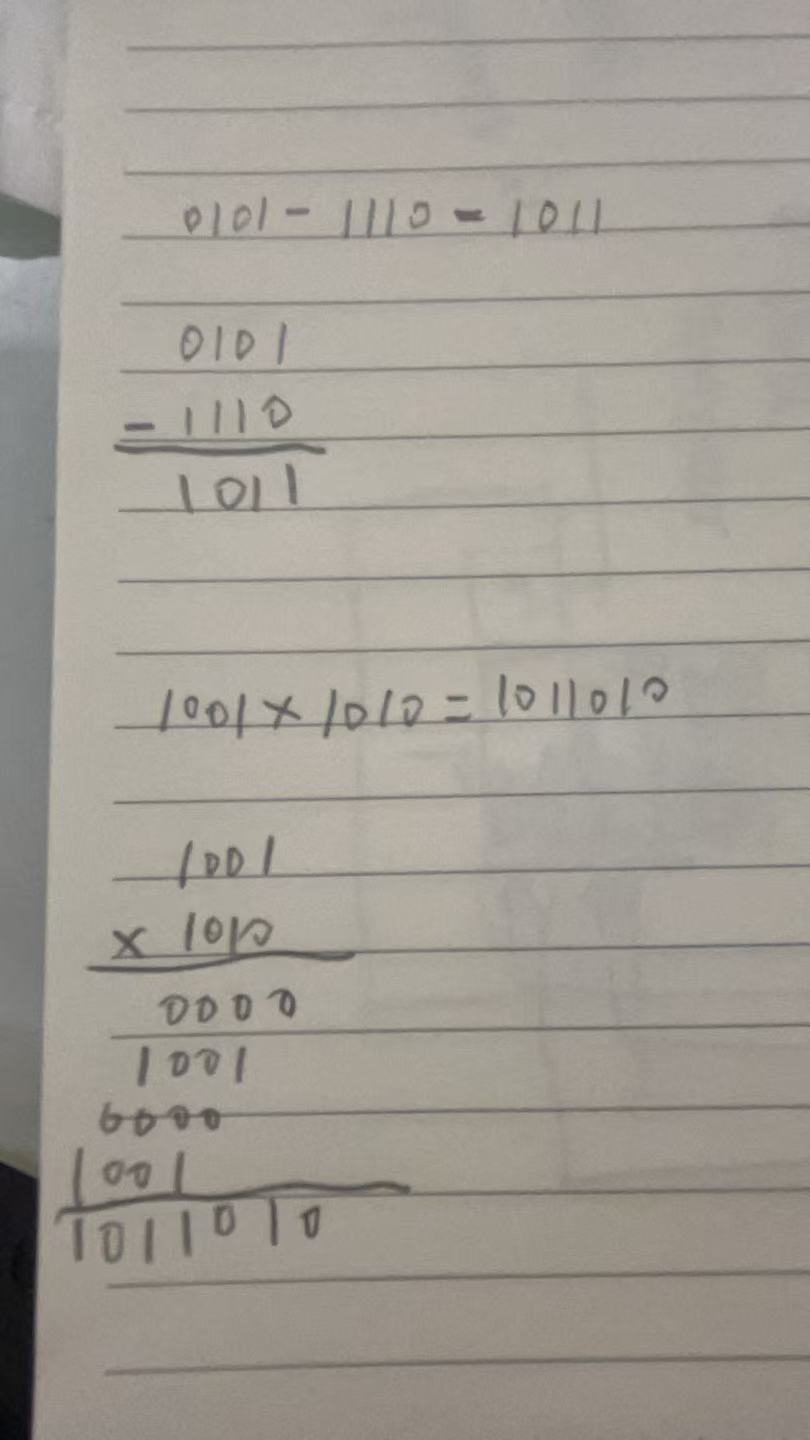 0101 - 1110 = 1011
0101
- 1110
1011
1001 × 1010 = 1011010
1001
× 1010
0000
1001
0000
1001
1011010